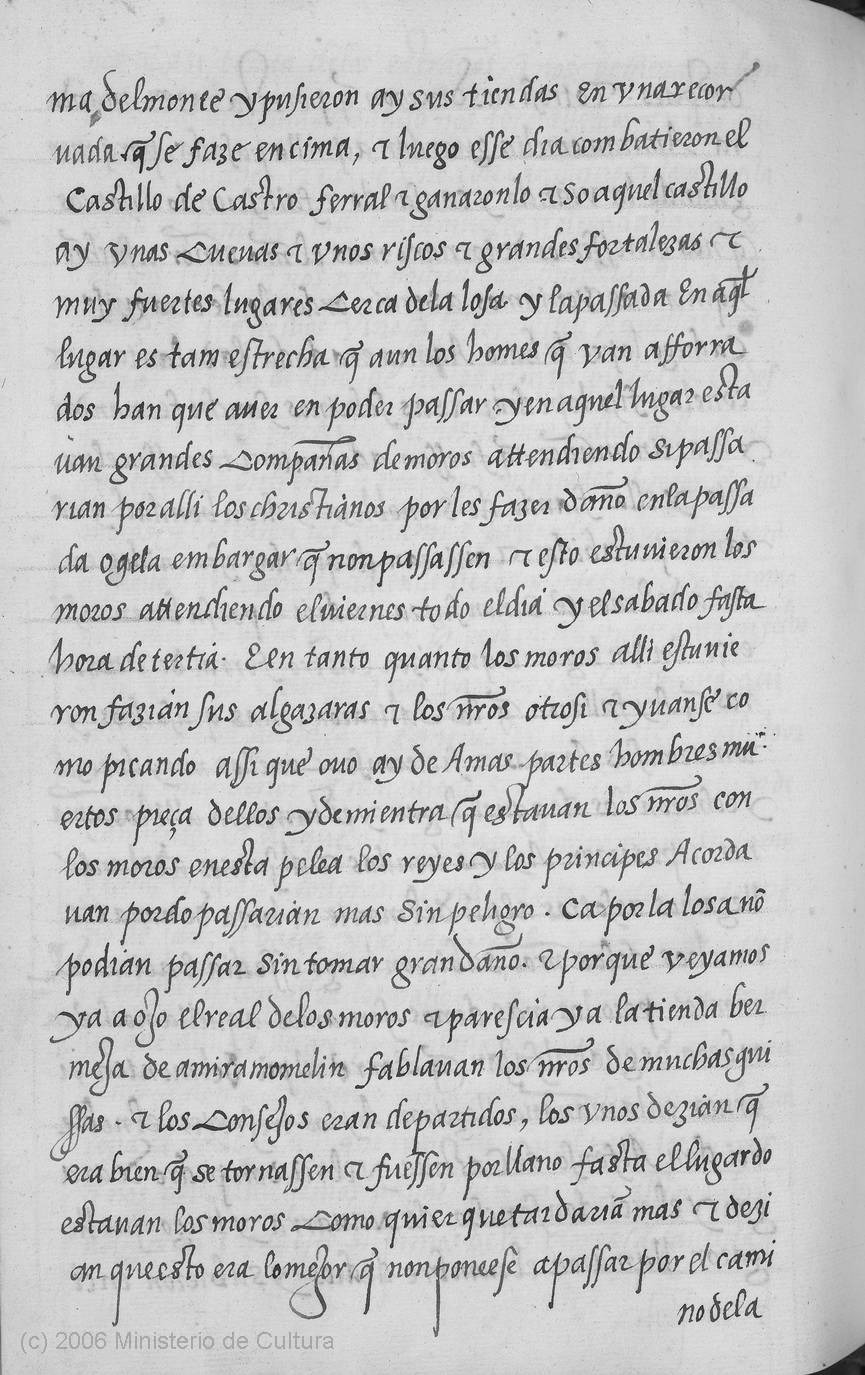 ma delmonte y pusieron ay sus tiendas En vna recor
uada q̃ se faze en cima, τ luego esse dia combatieron el
Castillo de Castro ferral τ ganaronlo τ so aquel castillo
ay vnas Cueuas τ vnos riscos τ grandes fortalezas τ
muy fuertes lugares Cerca dela losa y la passada En aq̃l
lugar es tam estrecha q̃ aun los homes q̃ van afforra
dos han que auer en poder passar y en aquel lugar esta
uan grandes Compañas de moros attendiendo si passa
rian por alli los christianos por les fazer daño en la passa
da o gela embargar q̃ non passassen τ esto estuuieron los
moros attendiendo el viernes todo el dia y el sabado fasta
hora de tertia. E en tanto quanto los moros alli estuuie
ron fazian sus algazaras τ los nr̃os otrosi τ yuanse co
mo picando assi que ouo ay de Amas partes hombres mu
ertos pieça dellos y demientra q̃ estauan los nr̃os con
los moros en esta pelea los reyes y los principes Acorda
uan por do passarian mas Sin peligro. Ca por la losa nõ
podian passar Sin tomar gran daño. τ por que veyamos
ya a ojo el real delos moros τ parescia ya la tienda ber
meja de amiramomelin fablauan los nr̃os de muchas gui
ssas. τ los Consejos eran departidos, los vnos dezian q̃
era bien q̃ se tornassen τ fuessen por llano fasta el lugar do
estauan los moros Como quier que tardariã mas τ dezi
an que esto era lo mejor q̃ non ponerse a passar por el cami
no de la
(c) 2006 Ministerio de Cultura